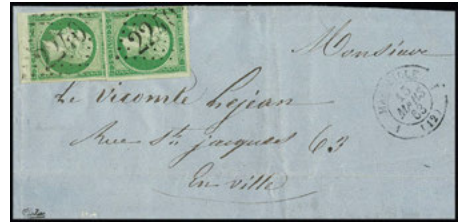 Monsieur
Le Vicomte Lejean
Rue St. jacques 63
En ville
MARSEILLE
15
MARS
63
(12)
2240